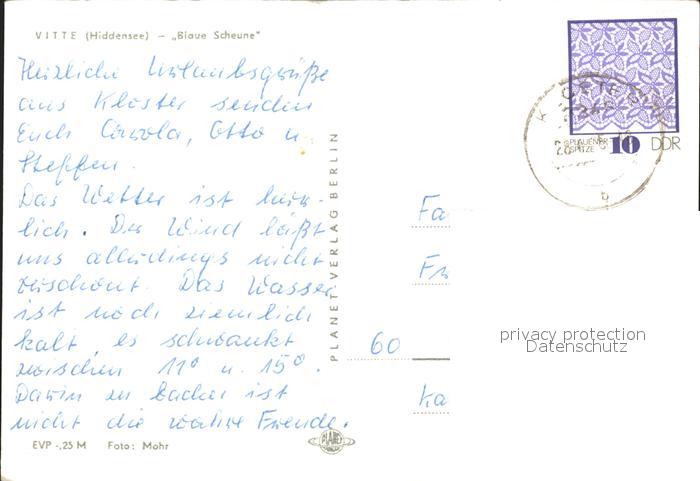 VITTE (Hiddensee) – „Blaue Scheune"
Herzliche Urlaubsgrüße
aus Kloster senden
Euch Carola, Otto u.
Steffen.
Das Wetter ist herr-
lich. Der Wind läßt
uns allerdings nicht
verschont. Das Wasser
ist noch ziemlich
kalt, es schwankt
zwischen 11° u. 15°.
Darin zu baden ist
nicht die wahre Freude.
EVP -,25 M Foto: Mohr
PLANET-VERLAG BERLIN
PLANET
PLAUENER
SPITZE 10 DDR
b
Fa
60
privacy protection
Datenschutz